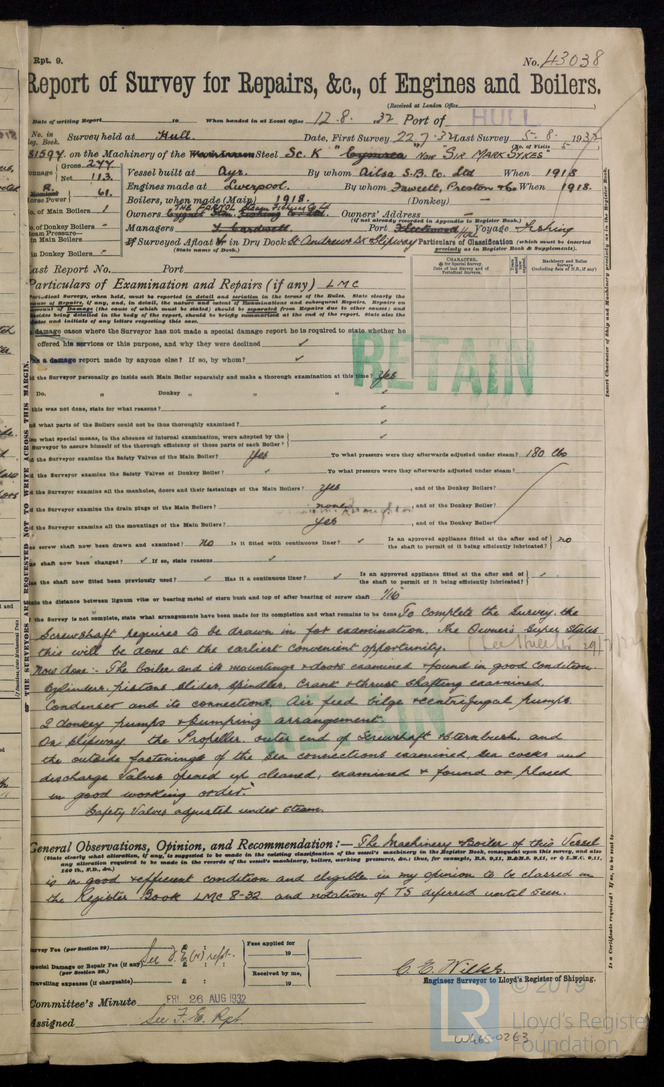 Rpt. 9.
No. 43038
Report of Survey for Repairs, &c., of Engines and Boilers.
(Received at London Office
Date of writing Report to When handed in at Local Office 12.8.32 Port of HULL
No. in Reg. Book. Survey held at Hull. Date, First Survey 22.7.32 Last Survey 5.8.1932
(No. of Visits 5)
81594 on the Machinery of the Steel Sc. K "Cyonrea" Now "SIR MARK SYKES"
Tonnage Gross 277 Net 113 Vessel built at Ayr. By whom Ailsa S.B. Co. Ltd When 1918
Engines made at Liverpool. By whom Fawcett, Preston & Co When 1918.
Horse Power 61. Boilers, when made (Main) 1918. (Donkey) -
No. of Main Boilers 1 Owners Owners' Address -
(if not already recorded in Appendix to Register Book.)
No. of Donkey Boilers - Managers Port Fleetwood Hull Voyage Fishing
Steam Pressure— in Main Boilers If Surveyed Afloat or in Dry Dock St Andrews Dk & Slipway Particulars of Classification (which must be inserted precisely as in Register Book & Supplements).
in Donkey Boilers - (State name of Dock.)
Last Report No. Port
Particulars of Examination and Repairs (if any) LMC
RETAIN
damage cases where the Surveyor has not made a special damage report he is required to state whether he
offered his services or this purpose, and why they were declined
a damage report made by anyone else? If so, by whom?
the Surveyor personally go inside each Main Boiler separately and make a thorough examination at this time? Yes
Do. " Donkey " " "
this was not done, state for what reasons?
what parts of the Boilers could not be thus thoroughly examined?
what special means, in the absence of internal examination, were adopted by the
Surveyor to assure himself of the thorough efficiency of those parts of each Boiler?
the Surveyor examine the Safety Valves of the Main Boiler? Yes To what pressure were they afterwards adjusted under steam? 180 lbs
the Surveyor examine the Safety Valves of Donkey Boiler? To what pressure were they afterwards adjusted under steam?
the Surveyor examine all the manholes, doors and their fastenings of the Main Boilers? yes , and of the Donkey Boilers?
the Surveyor examine the drain plugs of the Main Boilers? none , and of the Donkey Boiler?
the Surveyor examine all the mountings of the Main Boilers? yes , and of the Donkey Boiler?
screw shaft now been drawn and examined? no Is it fitted with continuous liner? Is an approved appliance fitted at the after end of the shaft to permit of it being efficiently lubricated? no
shaft now been changed? If so, state reasons
the shaft now fitted been previously used? Has it a continuous liner? Is an approved appliance fitted at after end of shaft to permit of it being efficiently lubricated?
the distance between lignum vitæ or bearing metal of stern bush and top of after bearing of screw shaft 1/16
the Survey is not complete, state what arrangements have been made for its completion and what remains to be done To complete the survey, the
Screwshaft requires to be drawn in for examination. The Owners Super States
this will be done at the earliest convenient opportunity.
Now done:- The boiler and its mountings & doors examined & found in good condition.
Cylinders, pistons slides, spindles, Crank & thrust shafting examined.
Condenser and its connections, Air feed bilge & centrifugal pumps.
2 donkey pumps & pumping arrangement.
RETAIN
On slipway the Propeller, outer end of Screwshaft & sternbush, and
the outside fastenings of the sea connections examined, sea cocks and
discharge Valves opened up cleaned, examined & found or placed
in good working order.
Safety Valves adjusted under steam.
General Observations, Opinion, and Recommendation:— The Machinery & Boiler of this Vessel
(State clearly what alteration, if any, is suggested to be made in the existing classification of the vessel's machinery in the Register Book, consequent upon this survey, and also
any alteration required to be made in the records of the vessel's machinery, boilers, working pressures, &c.; thus, for example, B.S. 9,11, B.&M.S. 9,11, or L.M.C. 9,11,
140 lb., F.D., &c.)
is in good & efficient condition and eligible in my opinion to be classed in
the Register Book LMC 8-32 and notation of TS deferred until seen.
Survey Fee (per Section 29) £ : :
Special Damage or Repair Fee (if any) (per Section 29.) £ : :
Travelling expenses (if chargeable) £ : :
Fees applied for 19
Received by me, 19
C.E. Wilks
Engineer Surveyor to Lloyd's Register of Shipping.
Committee's Minute FRI. 26 AUG 1932
Assigned See F.E. Rpt.
© 2019
Lloyd's Register
Foundation
W465-0263
OF THE SURVEYORS ARE REQUESTED NOT TO WRITE ACROSS THIS MARGIN.